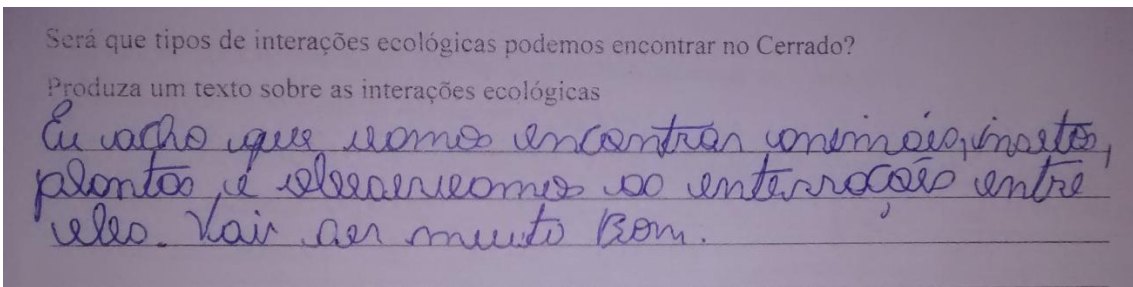 Será que tipos de interações ecológicas podemos encontrar no Cerrado?
Produza um texto sobre as interações ecológicas
Eu acho que vamos encontrar animais, insetos,
plantas, é observarmos as enterrações entre
eles. Vai ser muito Bom.